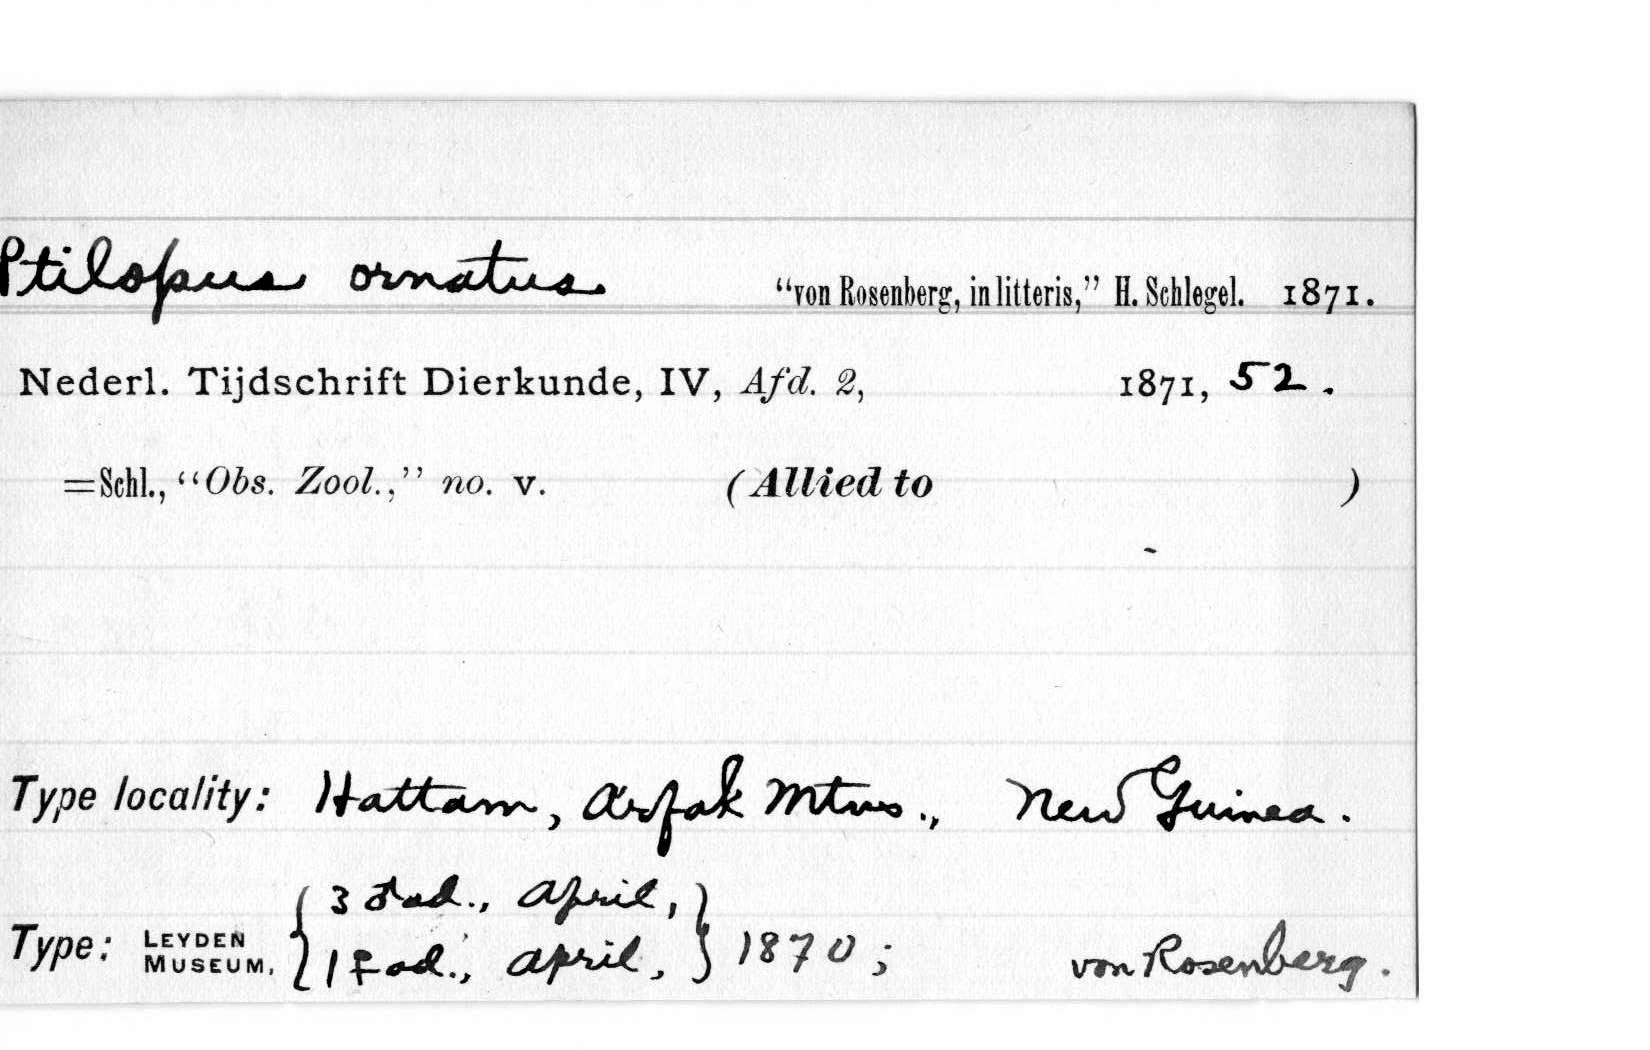 Ptilopus ornatus "von Rosenberg, in litteris," H. Schlegel. 1871.
Nederl. Tijdschrift Dierkunde, IV, Afd. 2, 1871, 52.
=Schl., "Obs. Zool.," no. v. (Allied to )
Type locality: Hattam, Arfak Mtns., New Guinea.
Type: LEYDEN MUSEUM, { 3 ♂ ad., April, 1 ♀ ad., April, } 1870; von Rosenberg.